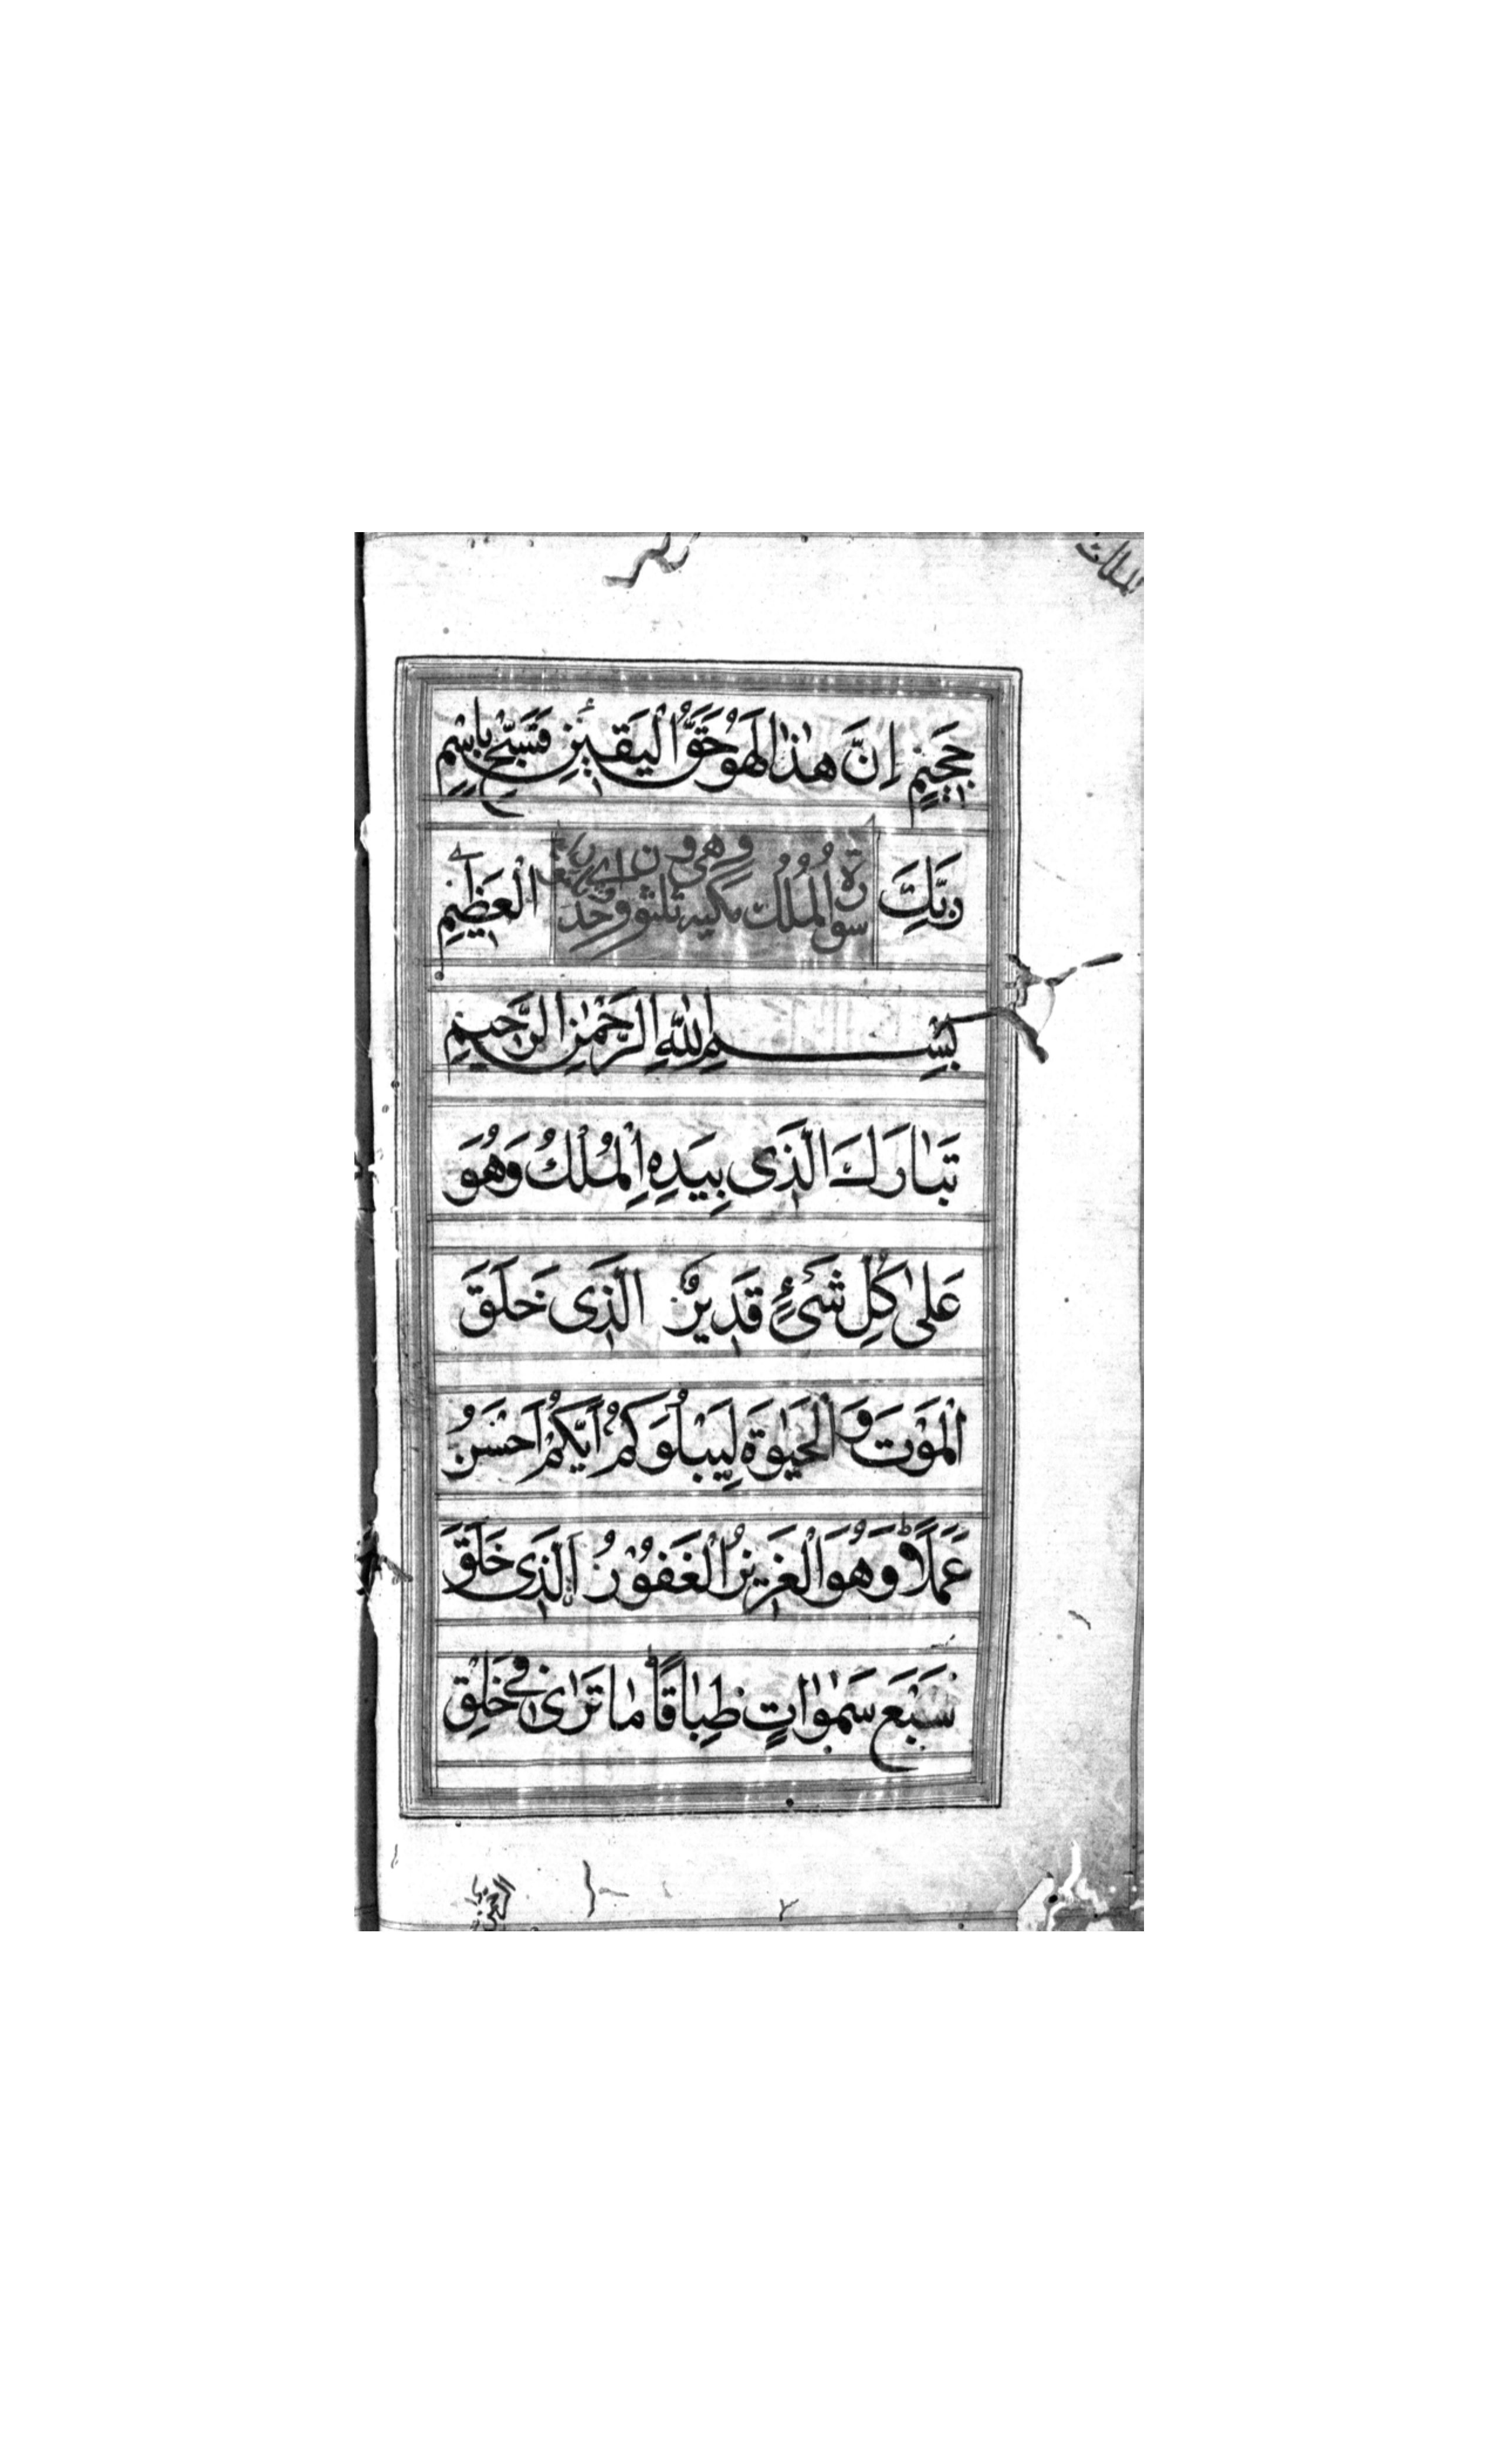 الملك
جَحِيْمٍ اِنَّ هٰذٰا لَهُوَ حَقُّ الْيَقيٖنِ فَسَبِّحْ بِاسْمِ
رَبِّكَ الْعَظيٖمِ
سورة الْمُلْكُ مكية ثلثو
بِسْمِ اللّٰهِ الرَّحْمٰنِ الرَّحيٖمِ
تَبٰارَكَ الَّذٖى بِيَدِهِ الْمُلْكُ وَهُوَ
عَلٰى كُلِّ شَىْءٍ قَدٖيرٌ الَّذٖى خَلَقَ
الْمَوْتَ وَالْحَيٰوةَ لِيَبْلُوَكُمْ اَيُّكُمْ اَحْسَنُ
عَمَلًا وَهُوَ الْعَزٖيزُ الْغَفُوْرُ اَلَّذٖى خَلَقَ
سَبْعَ سَمٰوٰاتٍ طِبٰاقًا مٰا تَرٰى فٖى خَلْقِ